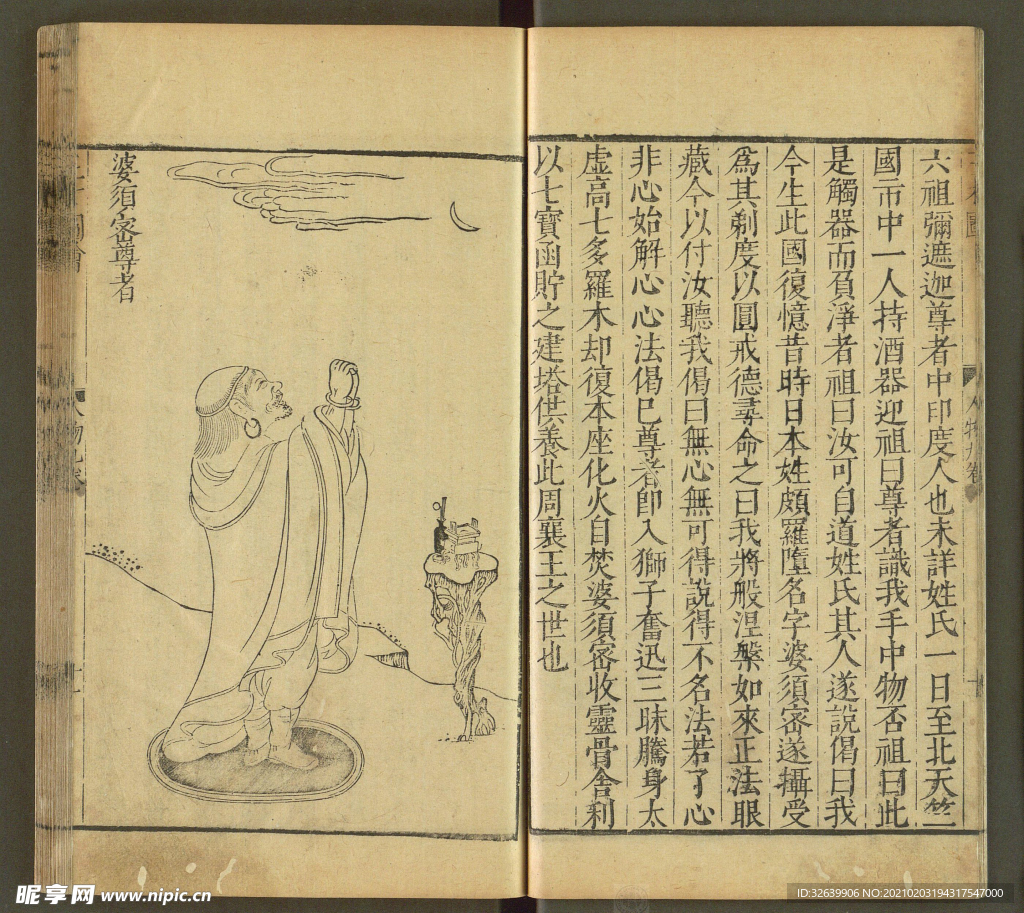 六祖彌遮迦尊者中印度人也未詳姓氏一日至北天竺
國市中一人持酒器迎祖曰尊者識我手中物否祖曰此
是觸器而負淨者祖曰汝可自道姓氏其人遂說偈曰我
今生此國復憶昔時日本姓頗羅墮名字婆須密遂攝受
爲其剃度以圓戒德尋命之曰我將般涅槃如來正法眼
藏今以付汝聽我偈曰無心無可得說得不名法若了心
非心始解心心法偈巳尊者卽入獅子奮迅三昧騰身太
虛高七多羅木却復本座化火自焚婆須密收靈骨舍利
以七寶函貯之建塔供養此周襄王之世也
婆須密尊者
人物九卷
昵享网 www.nipic.cn
ID:32639906 NO:20210203194317547000